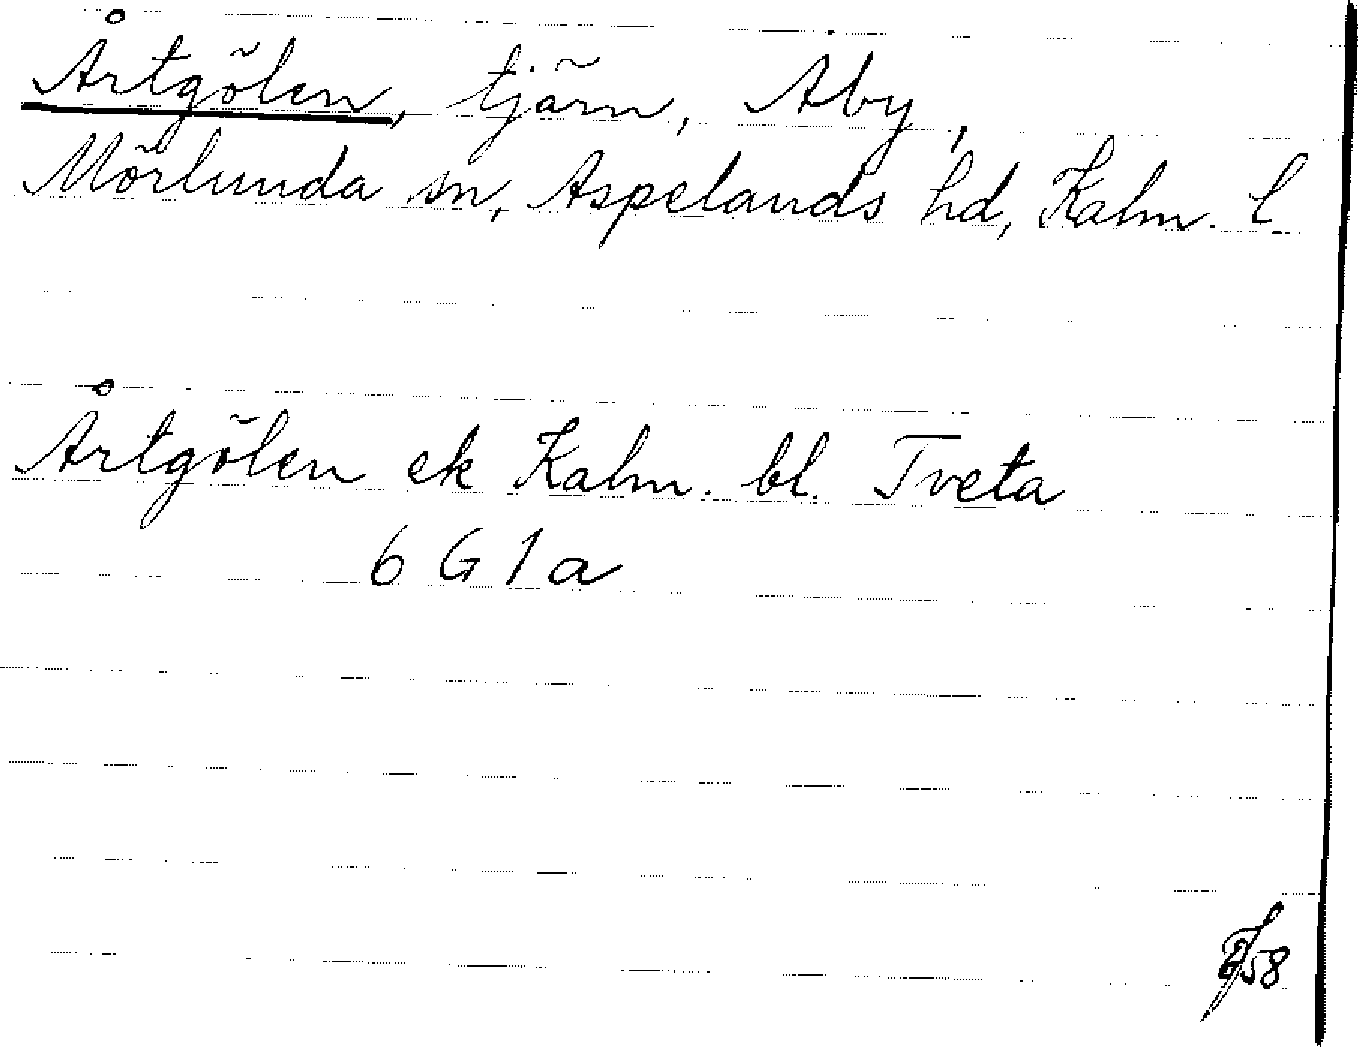 Årtgölen, tjärn, Åby,
Mörlunda sn, Aspelands hd, Kalm. l
Årtgölen ek Kalm. bl. Tveta
6 G 1 a
58